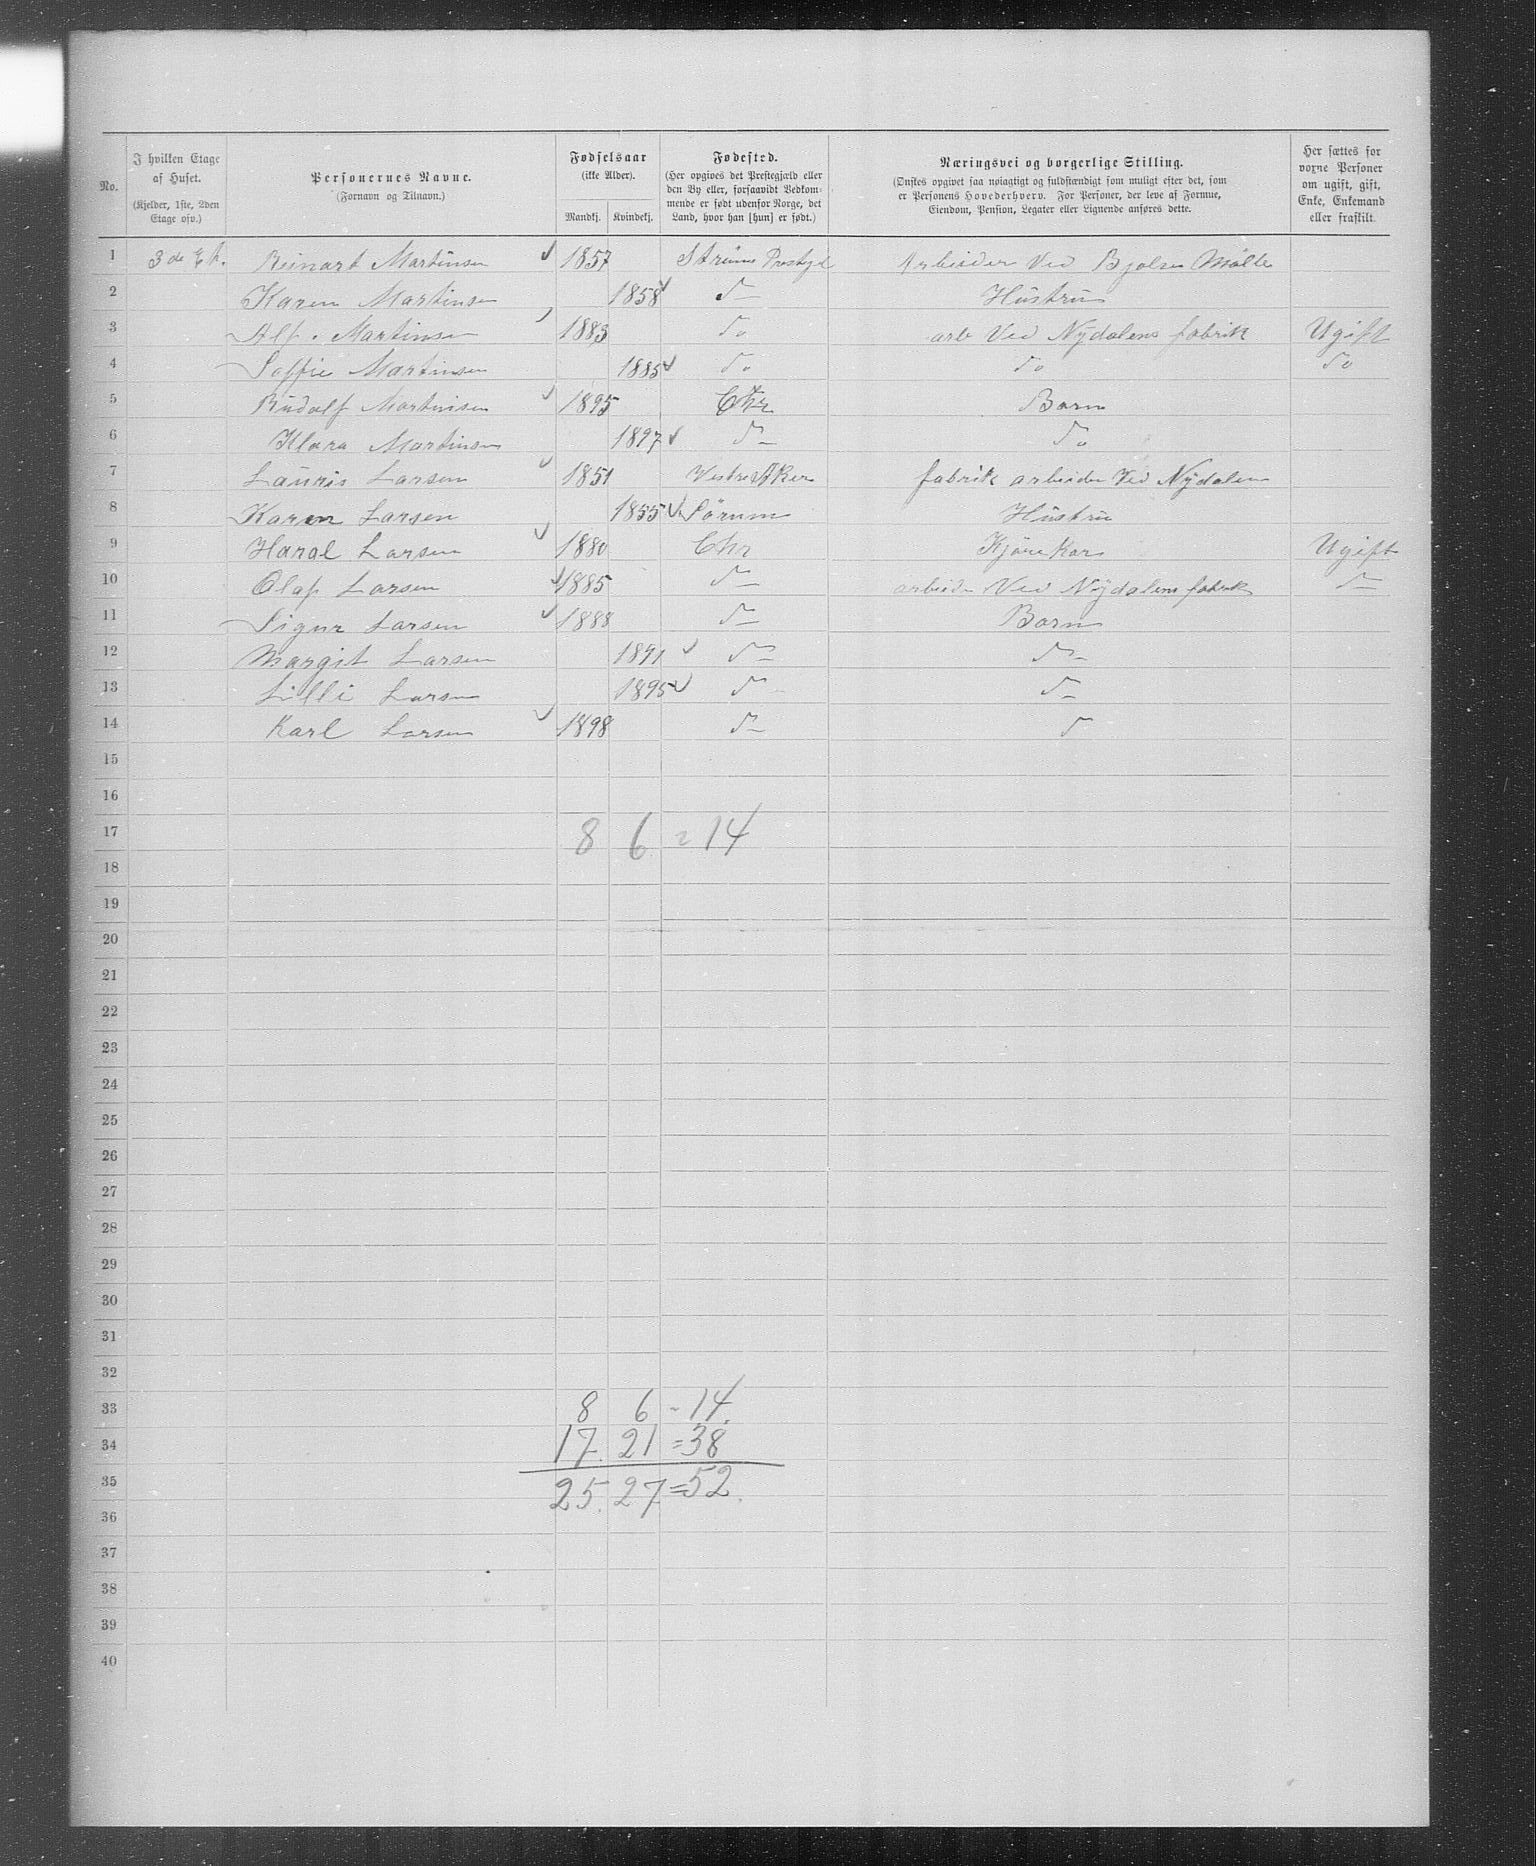 No. I hvilken Etage af Huset. (Kjelder, 1ste, 2den Etage osv.) Personernes Navne. (Fornavn og Tilnavn.) Fødselsaar (ikke Alder). Mandkj. Kvindekj. Fødested. (Her opgives det Prestegjæld eller den By eller, forsaavidt Vedkommende er født udenfor Norge, det Land, hvor han [hun] er født.) Næringsvei og borgerlige Stilling. (Ønskes opgivet saa nøiagtigt og fuldstændigt som muligt efter det, som er Personens Hovederhverv. For Personer, der leve af Formue, Eiendom, Pension, Legater eller Lignende anføres dette. Her sættes for voxne Personer om ugift, gift, Enke, Enkemand eller fraskilt.
1 3de Et. Reinart Martinsen 1857 Strüms Prestgd Arbeider Ved Bjolsen Mölle
2 Karen Martinsen 1858 do Hüstrü
3 Alf. Martinsen 1883 do arb Ved Nÿdalens fabrik Ugift
4 Soffie Martinsen 1885 do do do
5 Rüdolf Martinsen 1895 Chr Barn
6 Klara Martinsen 1897 do do
7 Laüris Larsen 1851 Vestre AKer fabrik arbeider Ved Nÿdalen
8 Karen Larsen 1855 Sörum Hüstrü
9 Haral Larsen 1880 Chr Kjöre Kar Ugift
10 Olaf Larsen 1885 do arbeide Ved Nÿdalens fabrik do
11 Sigur Larsen 1888 do Barn
12 Margit Larsen 1891 do do
13 Lilli Larsen 1895 do do
14 Karl Larsen 1898 do do
15
16
17 8 6 = 14
18
19
20
21
22
23
24
25
26
27
28
29
30
31
32
33 8 6 - 14.
34 17. 21 = 38
35 25. 27 = 52.
36
37
38
39
40